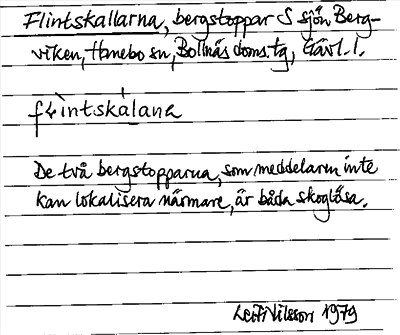 Flintskallarna, bergstoppar S sjön Berg-
viken, Hanebo sn, Bollnäs doms.tg, Gävl. l.
flìntskálana
De två bergstopparna, som meddelaren inte
kan lokalisera närmare, är båda skoglösa.
Leif Nilsson 1979